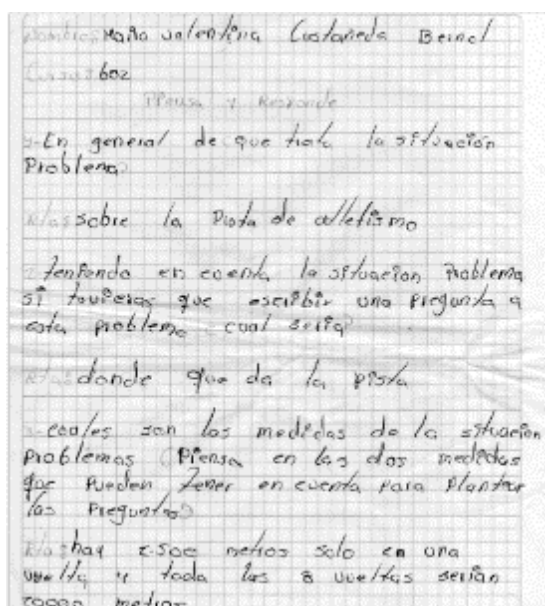 Nombres Maria valentina Castañeda Bernal
Curso: 602
Piensa y Responde
1-En general de que trata la situación
Problema?
R/as sobre la Pista de atletismo
2-teniendo en cuenta la situacion Problema
si tuvieras que escribir una pregunta a
este problema ¿cual seria?
R/as donde que da la pista
3-cuales son las medidas de la situacion
Problemas (Piensa en las dos medidas
que Pueden tener en cuenta para Plantear
las Preguntas)
R/as hay metros solo en una
vuelta y toda las 8 vueltas serian
metros